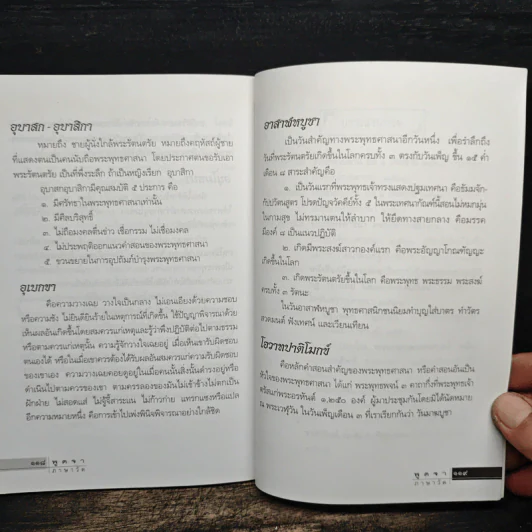 อุบาสก - อุบาสิกา
หมายถึง ชายผู้นั่งใกล้พระรัตนตรัย หมายถึงคฤหัสถ์ผู้ชาย
ที่แสดงตนเป็นคนนับถือพระพุทธศาสนา โดยประกาศตนขอรับเอา
พระรัตนตรัย เป็นที่พึ่งระลึก ถ้าเป็นหญิงเรียก อุบาสิกา
อุบาสกอุบาสิกามีคุณสมบัติ ๕ ประการ คือ
๑. มีศรัทธาในพระพุทธศาสนาเท่านั้น
๒. มีศีลบริสุทธิ์
๓. ไม่ถือมงคลตื่นข่าว เชื่อกรรม ไม่เชื่อมงคล
๔. ไม่ประพฤติออกแนวคำสอนของพระพุทธศาสนา
๕. ชวนขยายในการอุปถัมภ์บำรุงพระพุทธศาสนา
อุเบกขา
คือความวางเฉย วางใจเป็นกลาง ไม่เอนเอียงด้วยความชอบ
หรือความชัง ไม่ยินดียินร้ายในเหตุการณ์ที่เกิดขึ้น ใช้ปัญญาพิจารณาด้วย
เห็นผลอันเกิดขึ้นโดยสมควรแก่เหตุและรู้ว่าพึงปฏิบัติต่อไปตามธรรม
หรือตามควรแก่เหตุนั้น ความรู้จักวางใจเฉยอยู่ เมื่อเห็นเขารับผิดชอบ
ตนเองได้ หรือในเมื่อเขาควรต้องได้รับผลอันสมควรแก่ความรับผิดชอบ
ของเขาเอง ความวางเฉยคอยดูอยู่ในเมื่อคนนั้นสิ่งนั้นดำรงอยู่หรือ
ดำเนินไปตามควรของเขา ตามครรลองของมันไม่เข้าข้างไม่ตกเป็น
ฝักฝ่าย ไม่สอดแส่ ไม่จู้จี้สาระแน ไม่ก้าวก่าย แทรกแซงหรือแปล
อีกความหมายหนึ่ง คือการเข้าไปเพ่งพินิจพิจารณาอย่างใกล้ชิด
๑๑๘ พูดจา
ภาษาวัด
อาสาฬหบูชา
เป็นวันสำคัญทางพระพุทธศาสนาอีกวันหนึ่ง เพื่อรำลึกถึง
วันที่พระรัตนตรัยเกิดขึ้นในโลกครบทั้ง ๓ ตรงกับวันเพ็ญ ขึ้น ๑๕ ค่ำ
เดือน ๘ สาระสำคัญคือ
๑. เป็นวันแรกที่พระพุทธเจ้าทรงแสดงปฐมเทศนา คือธัมมจัก-
กัปปวัตนสูตร โปรดปัจจวัคคีย์ทั้ง ๕ ในพระเทศนากัณฑ์นี้สอนไม่หมกมุ่น
ในกามสุข ไม่ทรมานตนให้ลำบาก ให้ยึดทางสายกลาง คือมรรค
มีองค์ ๘ เป็นแนวปฏิบัติ
๒. เกิดมีพระสงฆ์สาวกองค์แรก คือพระอัญญาโกณฑัญญะ
เกิดขึ้นในโลก
๓. เกิดพระรัตนตรัยขึ้นในโลก คือพระพุทธ พระธรรม พระสงฆ์
ครบทั้ง ๓ รัตนะ
ในวันอาสาฬหบูชา พุทธศาสนิกชนนิยมทำบุญใส่บาตร ทำวัตร
สวดมนต์ ฟังเทศน์ และเวียนเทียน
โอวาทปาติโมกข์
คือหลักคำสอนสำคัญของพระพุทธศาสนา หรือคำสอนอันเป็น
หัวใจของพระพุทธศาสนา ได้แก่ พระพุทธพจน์ ๓ คาถากึ่งที่พระพุทธเจ้า
ตรัสแก่พระอรหันต์ ๑,๒๕๐ องค์ ผู้มาประชุมกันโดยมิได้นัดหมาย
ณ พระเวฬุวัน ในวันเพ็ญเดือน ๓ ที่เราเรียกกันว่า วันมาฆบูชา
พูดจา ๑๑๙
ภาษาวัด